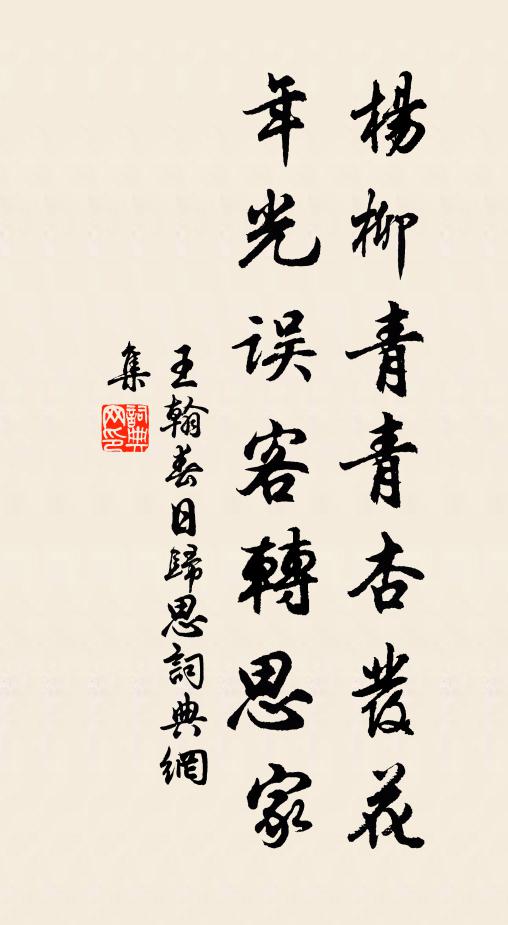 楊柳青青杏發花
年光误客轉思家
王翰春日歸思詞典網
集
詞典
网印